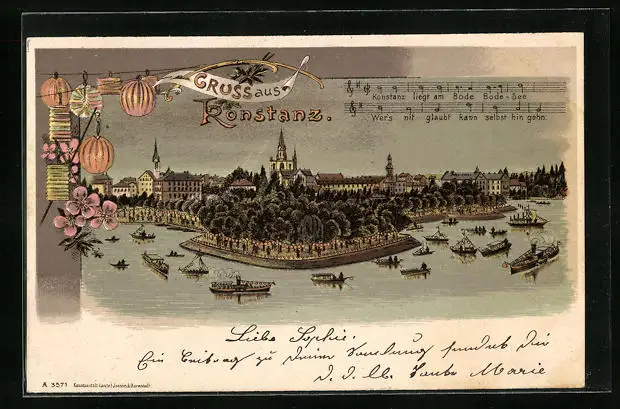 GRUSS aus
Konstanz.
Konstanz liegt am Bode Bode-See
Wer's nit glaubt kann selbst hin gehn.
Liebe Sophie.
Ein Beitrag zu Deiner Sammlung sendet Dir
Marie
A 3571